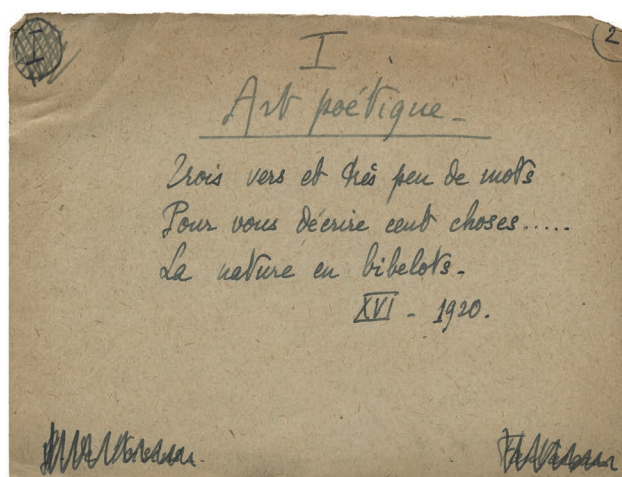 2
I
Art poétique -
Trois vers et très peu de mots
Pour vous décrire cent choses.....
La nature en bibelots -
XVI - 1920.